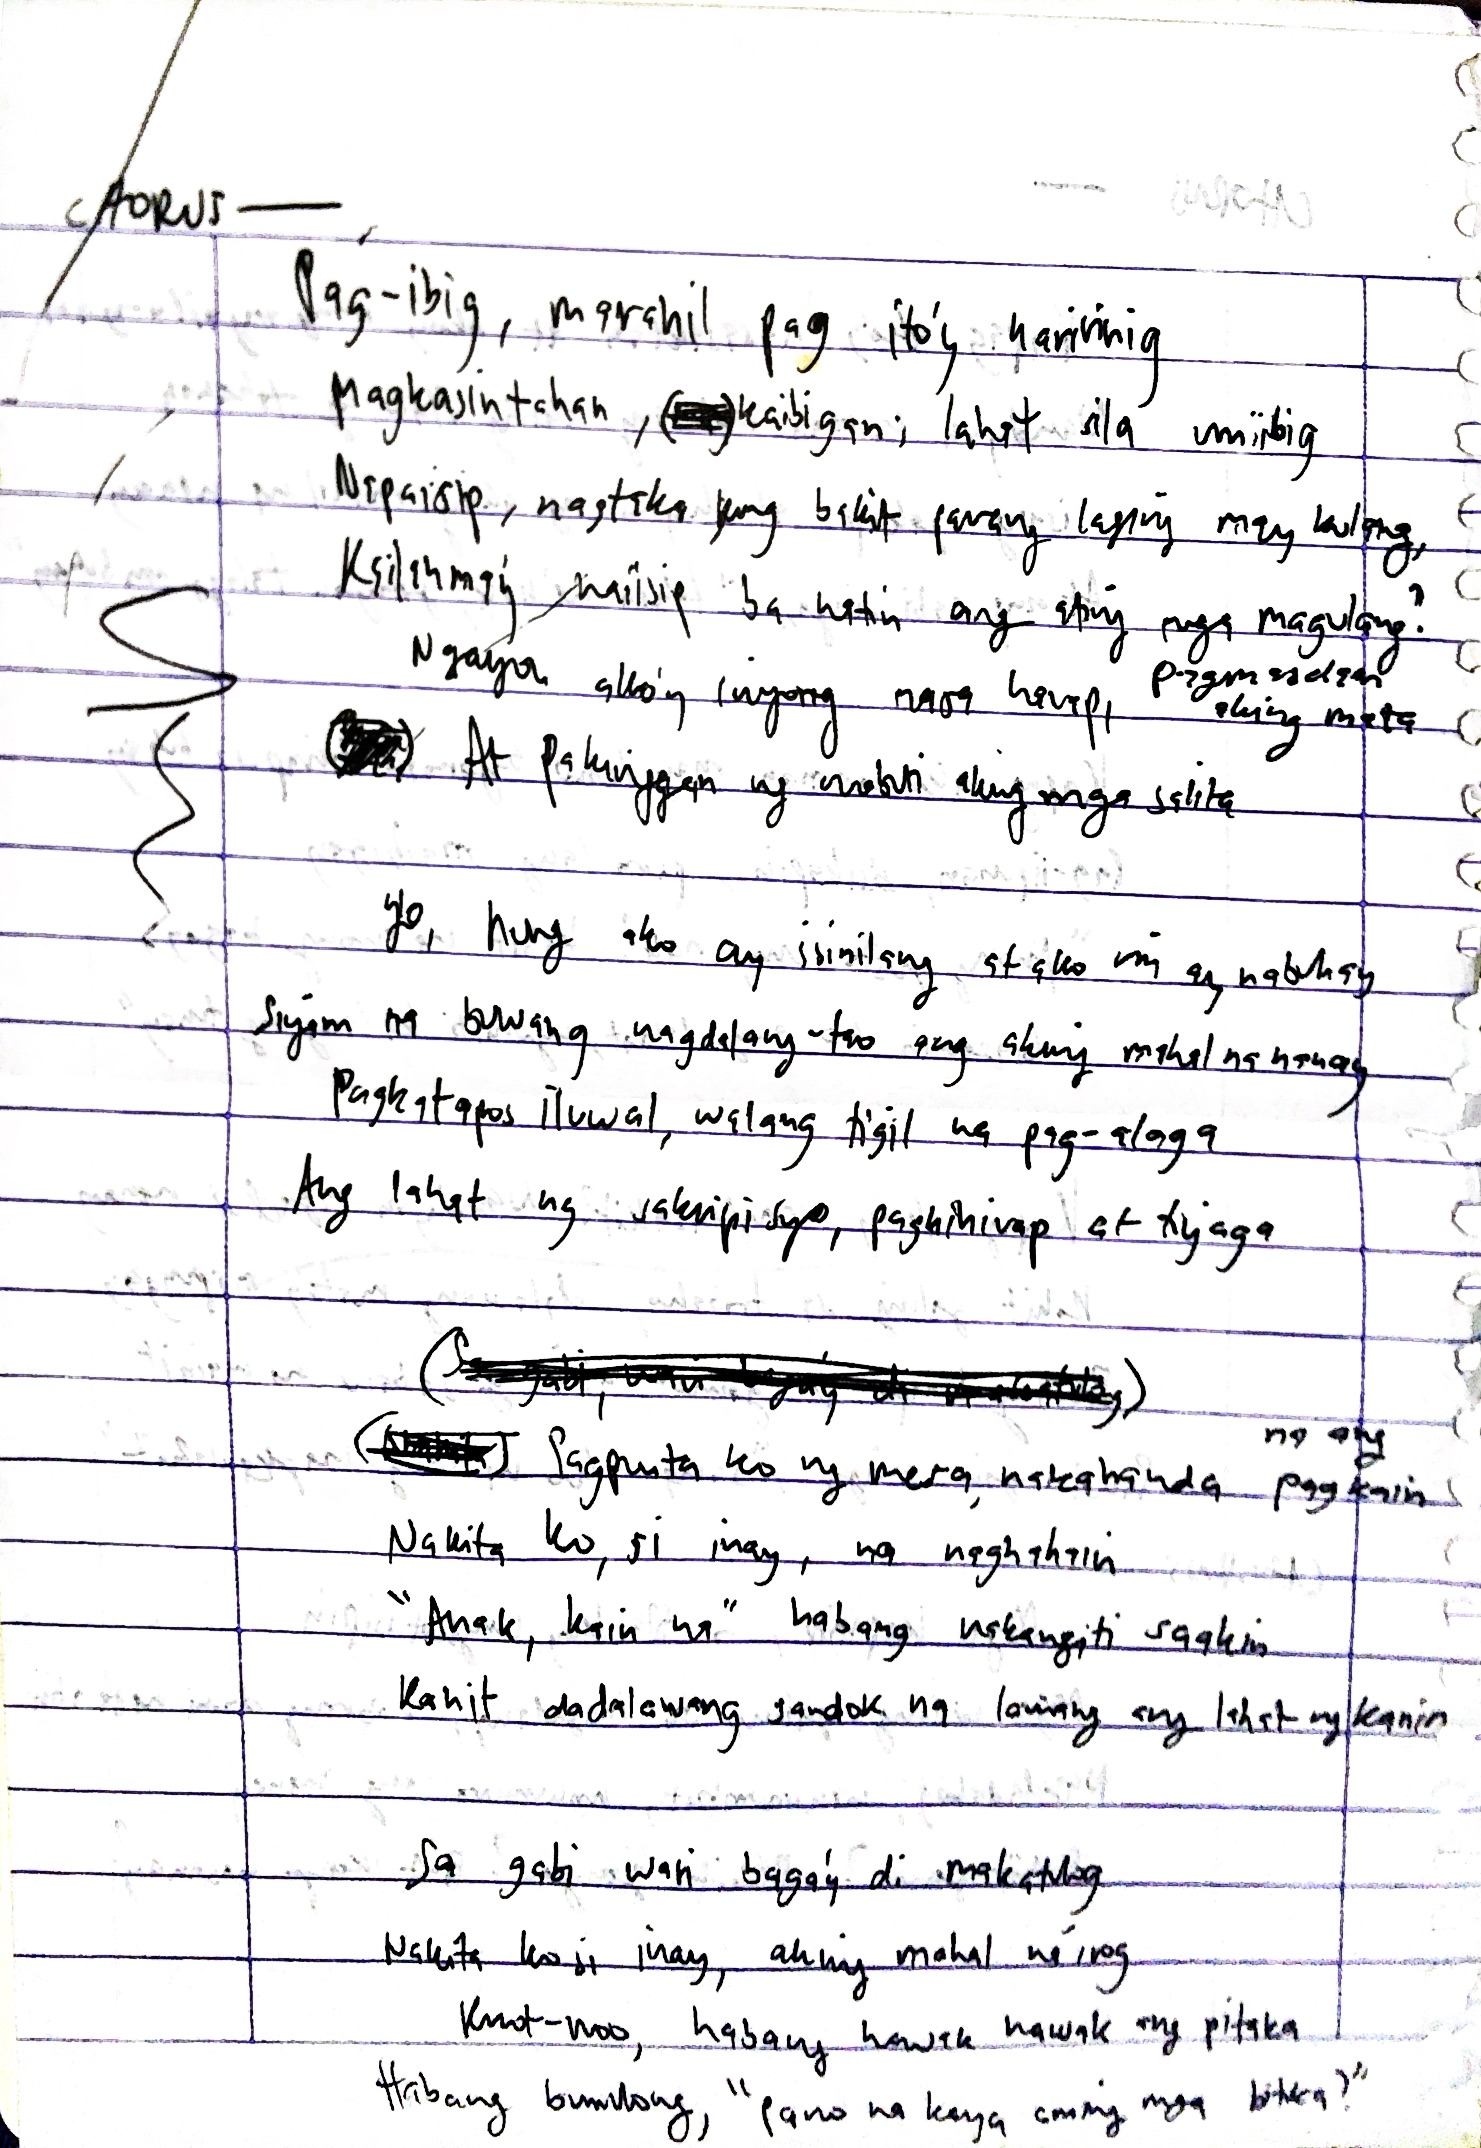 CHORUS —
Pag-ibig, marahil pag ito'y naririnig
Magkasintahan, kaibigan; lahat sila umiibig
Napaisip, nagtaka kung bakit parang laging may kulang,
Kailanma'y naiisip ba natin ang ating mga magulang?
Ngayon ako'y inyong nasa harap, pagmasdan aking mata
At pakinggan ng mabuti aking mga salita
Yo, nung ako ay isinilang at ako rin ay nabuhay
Siyam na buwang nagdalang-tao ang aking mahal na nanay
Pagkatapos iluwal, walang tigil na pag-alaga
Ang lahat ng sakripisyo, paghihirap at tiyaga
(Sa gabi, wari baga'y di makatulog)
Pagpunta ko ng mesa, nakahanda na ang pagkain
Nakita ko, si inay, na naghahain
"Anak, kain na" habang nakangiti saakin
Kahit dadalawang sandok na lamang ang lahat ng kanin
Sa gabi wari baga'y di makatulog
Nakita ko si inay, aking mahal na irog
Knot-noo, habang hawak hawak ang pitaka
Habang bumulong, "pano na kaya aming mga bituka?"